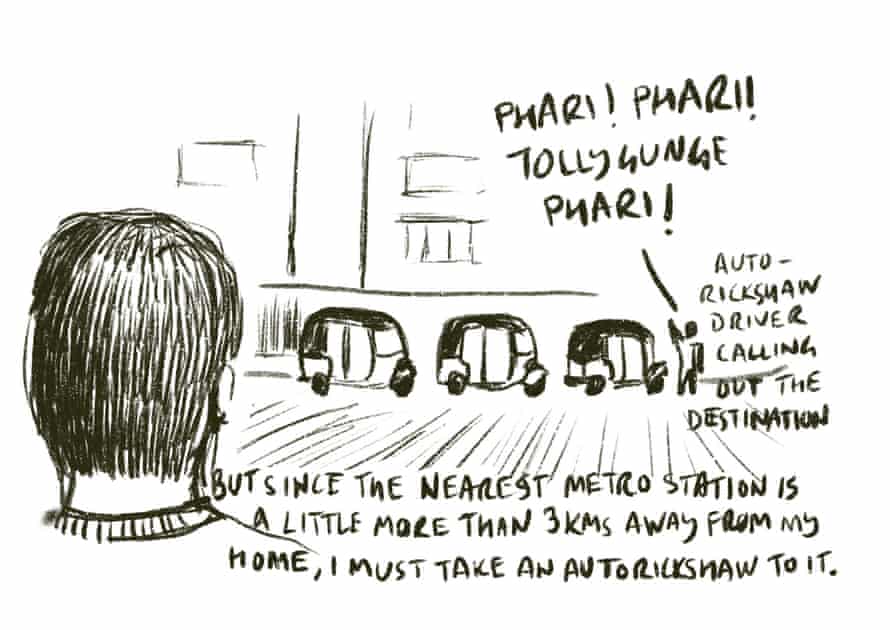 PHARI! PHARI!!
TOLLYGUNGE
PHARI!
AUTO-
RICKSHAW
DRIVER
CALLING
OUT THE
DESTINATION
BUT SINCE THE NEAREST METRO STATION IS
A LITTLE MORE THAN 3KMS AWAY FROM MY
HOME, I MUST TAKE AN AUTORICKSHAW TO IT.